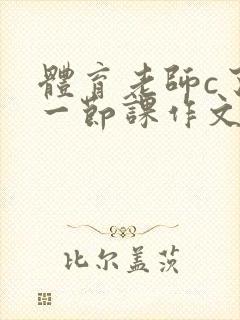 體育老師c了
一節課作文
比尔盖茨